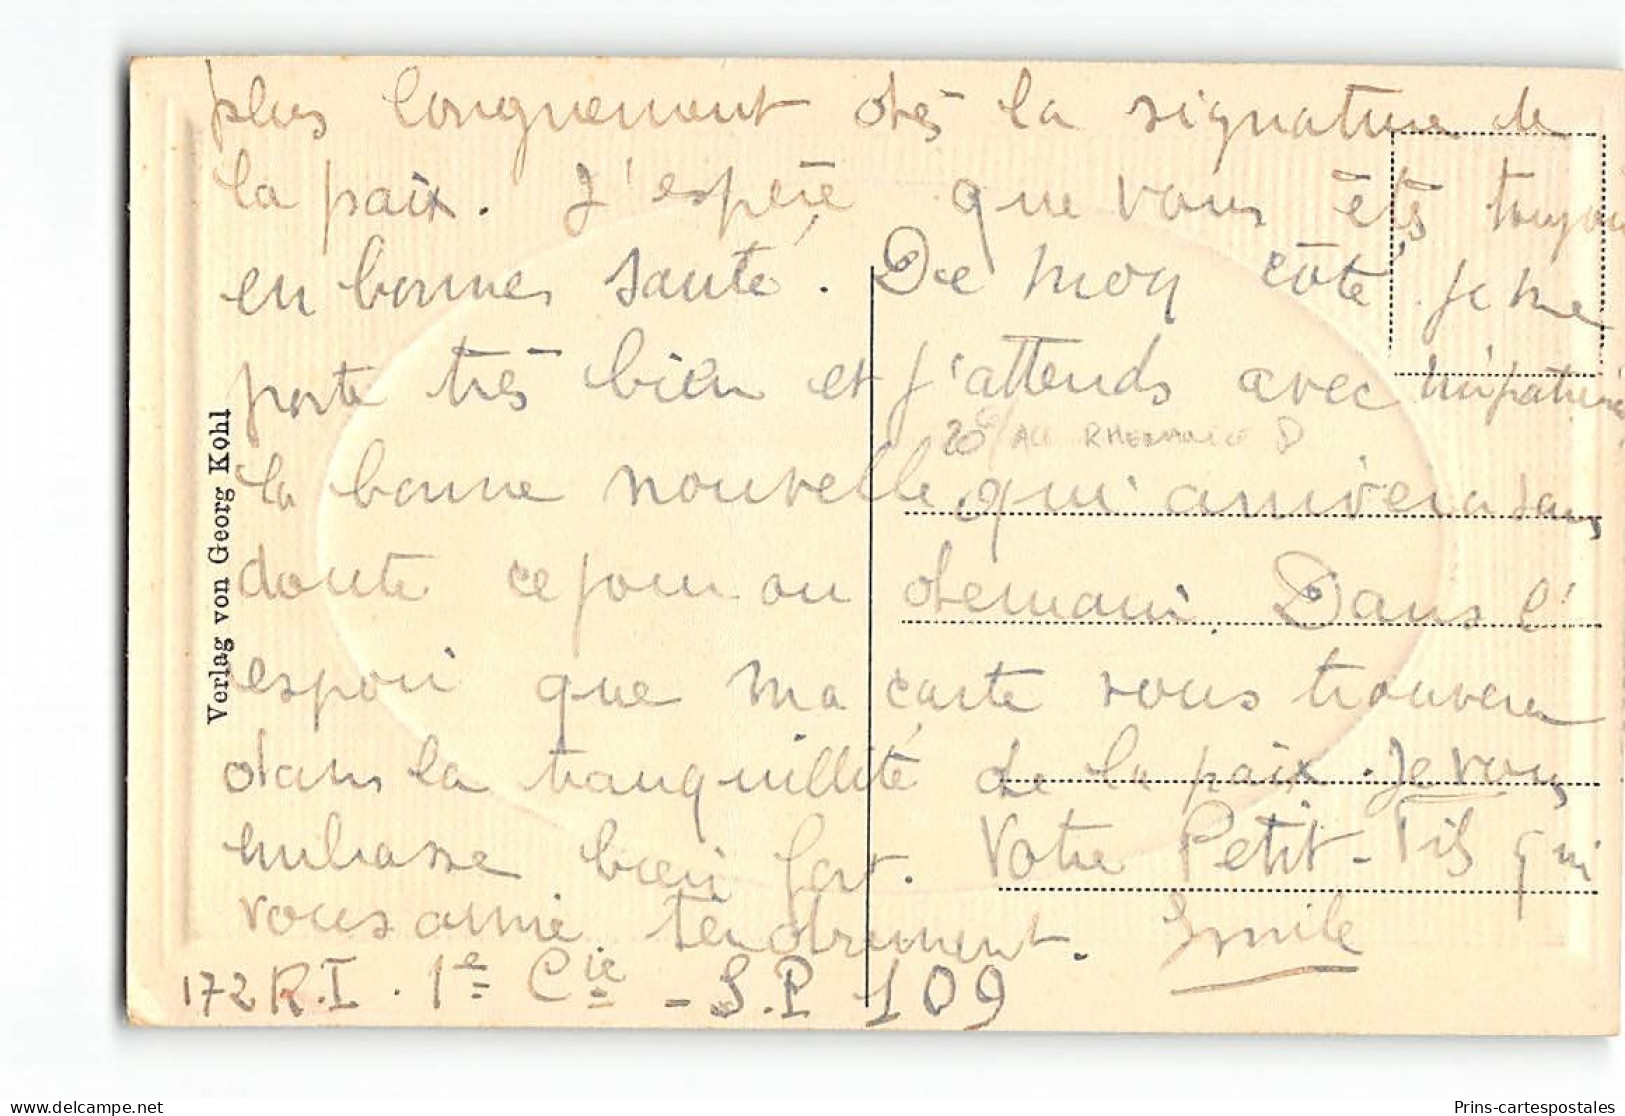 plus longuement dès la signature de
la paix. J'espère que vous êtes toujou
en bonnes santé. De mon côté, je me
porte très bien et j'attends avec impatien
20 All RHENANIE D
la bonne nouvelle, qui arrivera sans
doute ce jour ou demain. Dans l'
espoir que ma carte vous trouvera
dans la tranquillité de la paix. Je vous
embrasse bien fort. Votre Petit-Fils qui
vous aime tendrement. Emile
172 R.I. 1e Cie - S.P 109
Verlag von Georg Kohl
Prins-cartespostales
delcampe.net